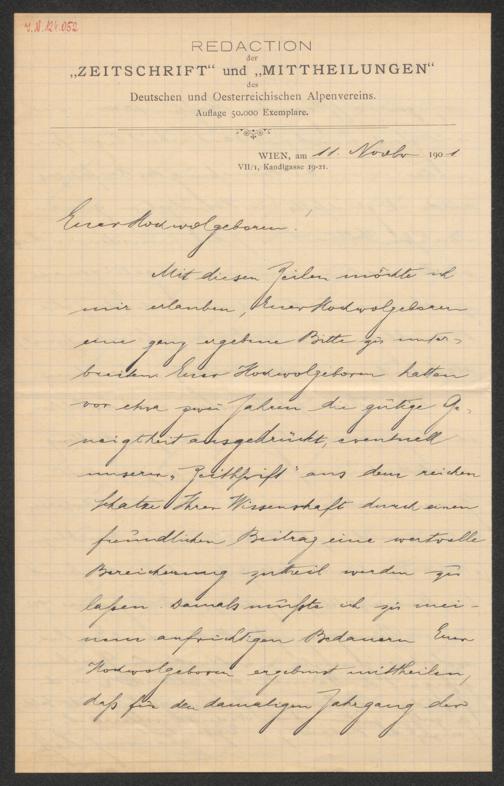 J.N. 124.052
REDACTION
der
„ZEITSCHRIFT“ und „MITTHEILUNGEN“
des
Deutschen und Oesterreichischen Alpenvereins.
Auflage 50.000 Exemplare.
WIEN, am 11. Novbr 1901
VII/1, Kandlgasse 19-21.
Euer Hochwolgeboren!
Mit diesen Zeilen möchte ich
mir erlauben, Euer Hochwolgeboren
eine ganz ergebene Bitte zu unter-
breiten. Euer Hochwolgeboren hatten
vor etwa zwei Jahren die gütige Ge-
neigtheit ausgedrückt, eventuell
unserer „Zeitschrift“ aus dem reichen
Schatze Ihrer Wissenschaft durch einen
freundlichen Beitrag eine wertvolle
Bereicherung zutheil werden zu
laßen. Damals mußte ich zu mei-
nem aufrichtigen Bedauern Euer
Hochwolgeboren ergebenst mittheilen,
daß für den damaligen Jahrgang der